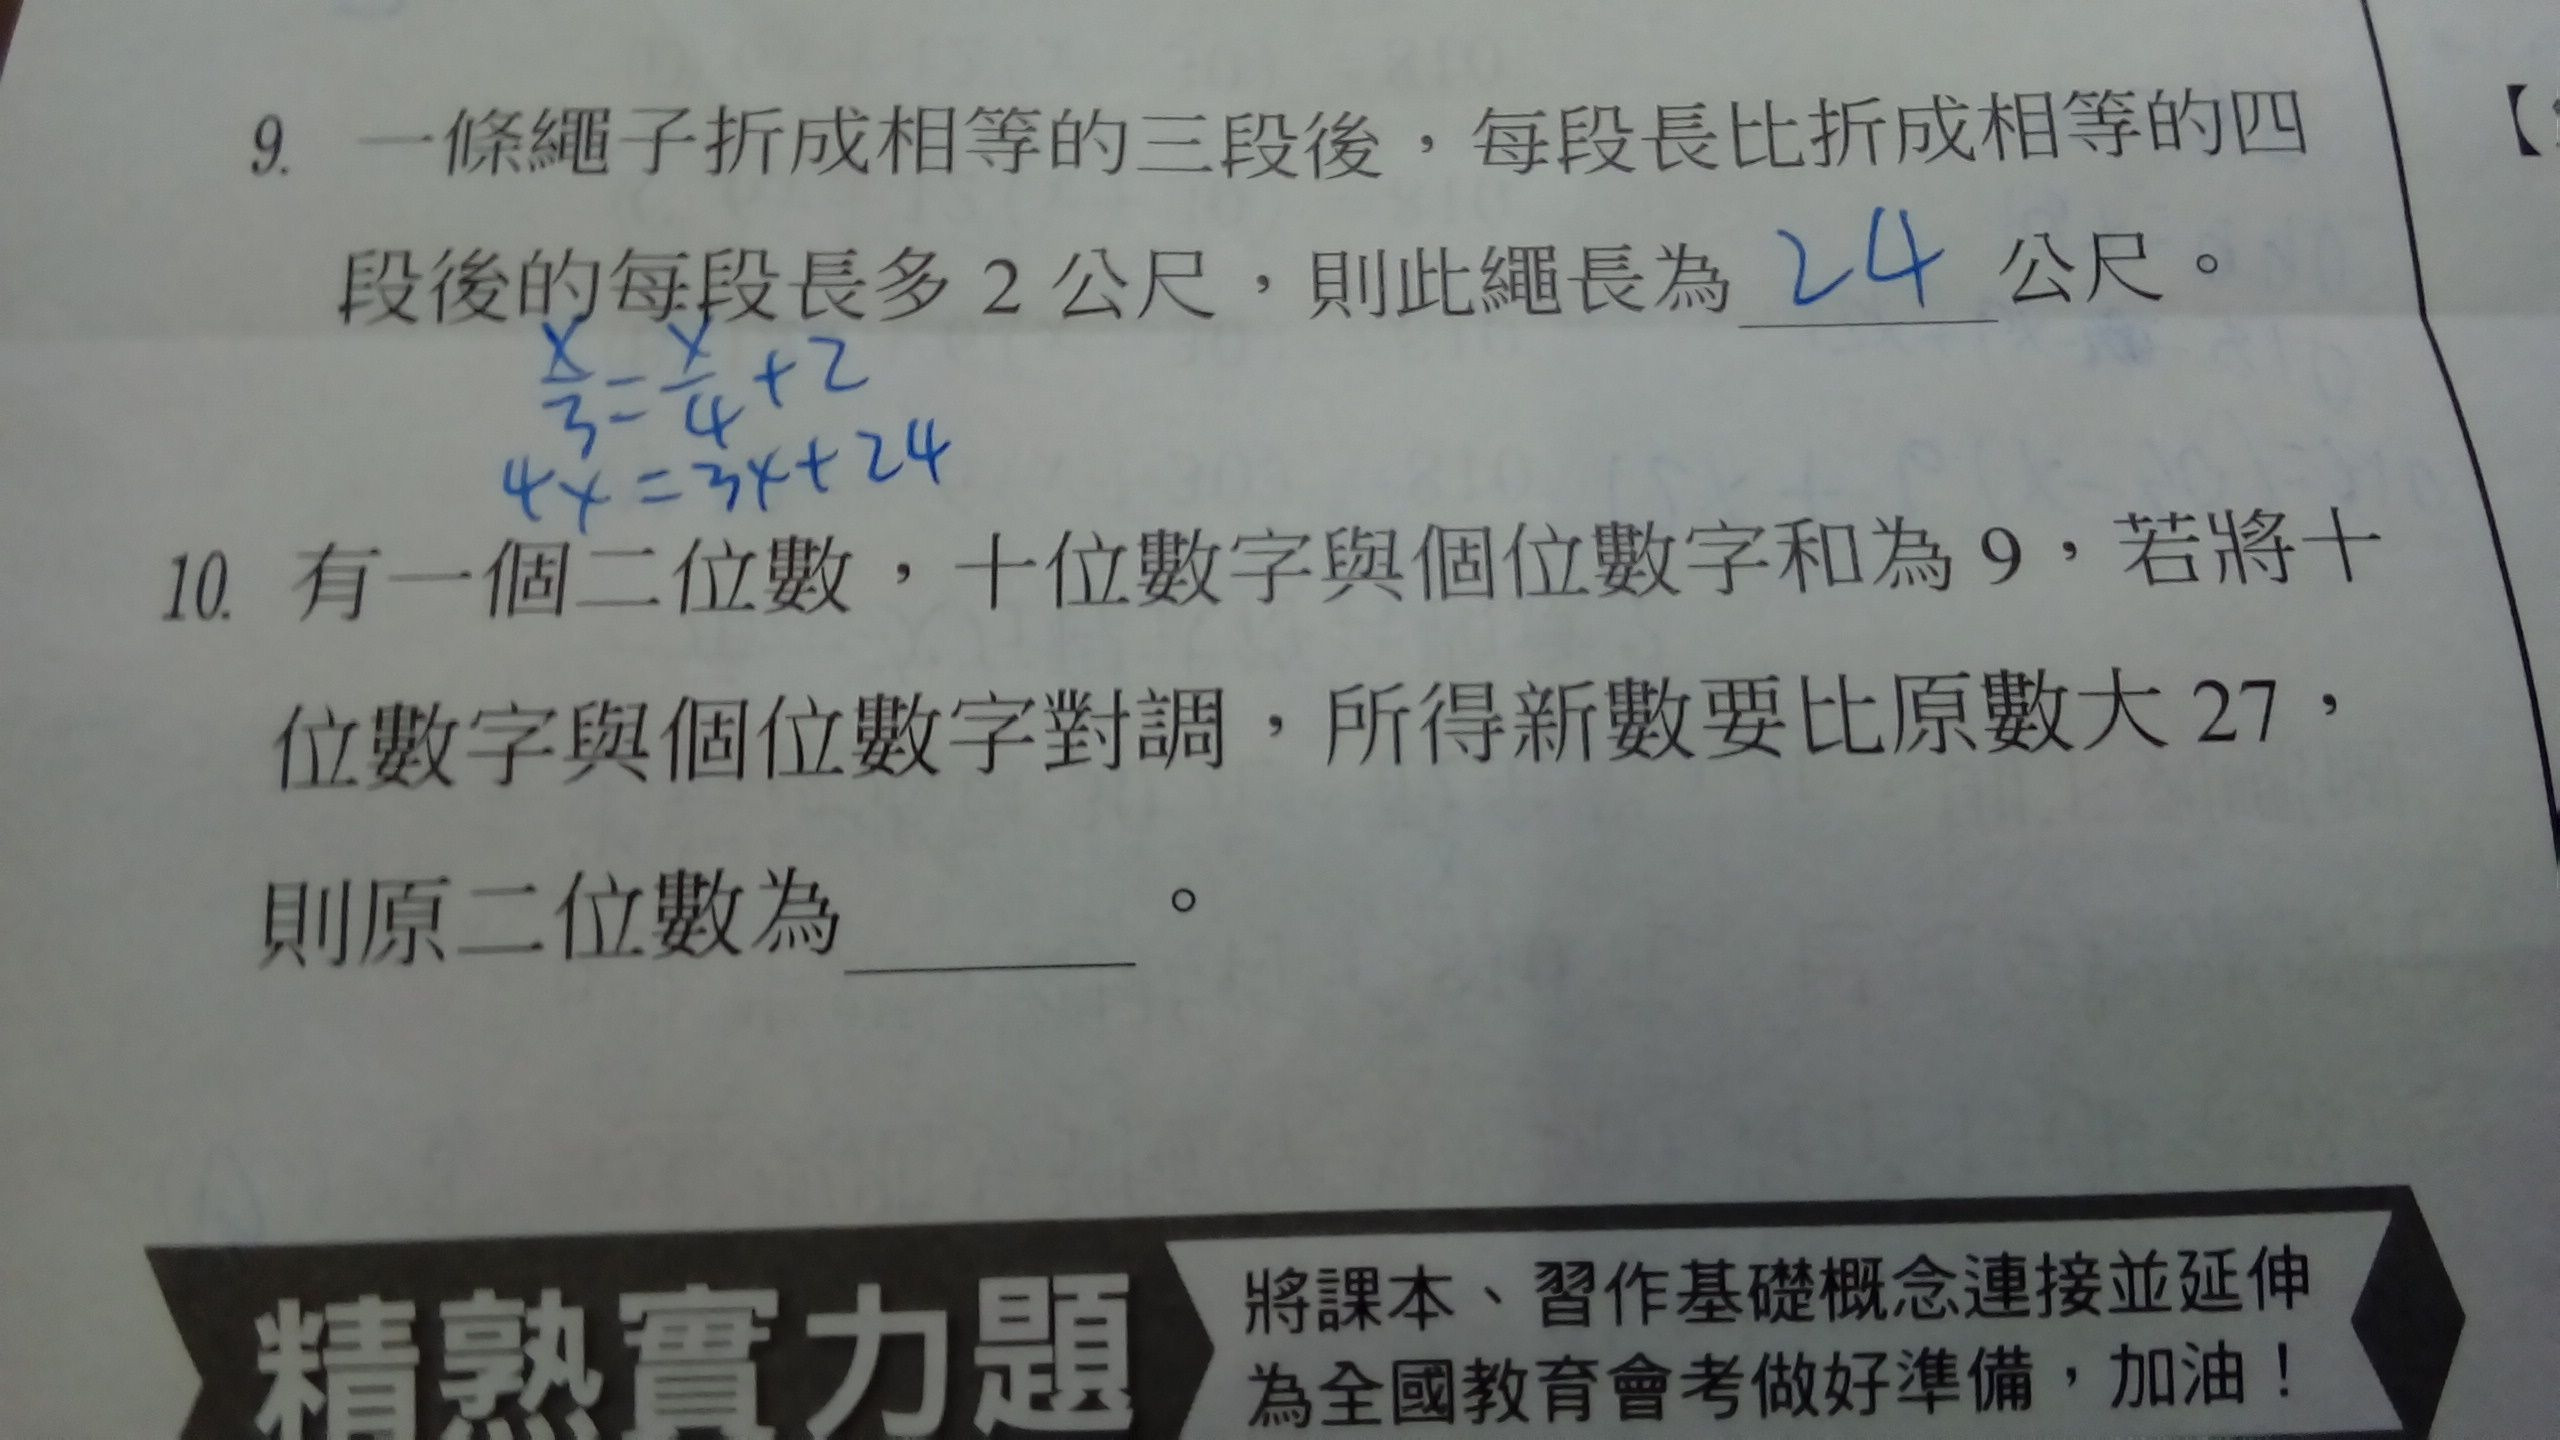 9. 一條繩子折成相等的三段後，每段長比折成相等的四
段後的每段長多 2 公尺，則此繩長為 24 公尺。
x/3 = x/4 + 2
4x = 3x + 24
10. 有一個二位數，十位數字與個位數字和為 9，若將十
位數字與個位數字對調，所得新數要比原數大 27，
則原二位數為______。
精熟實力題
將課本、習作基礎概念連接並延伸
為全國教育會考做好準備，加油！